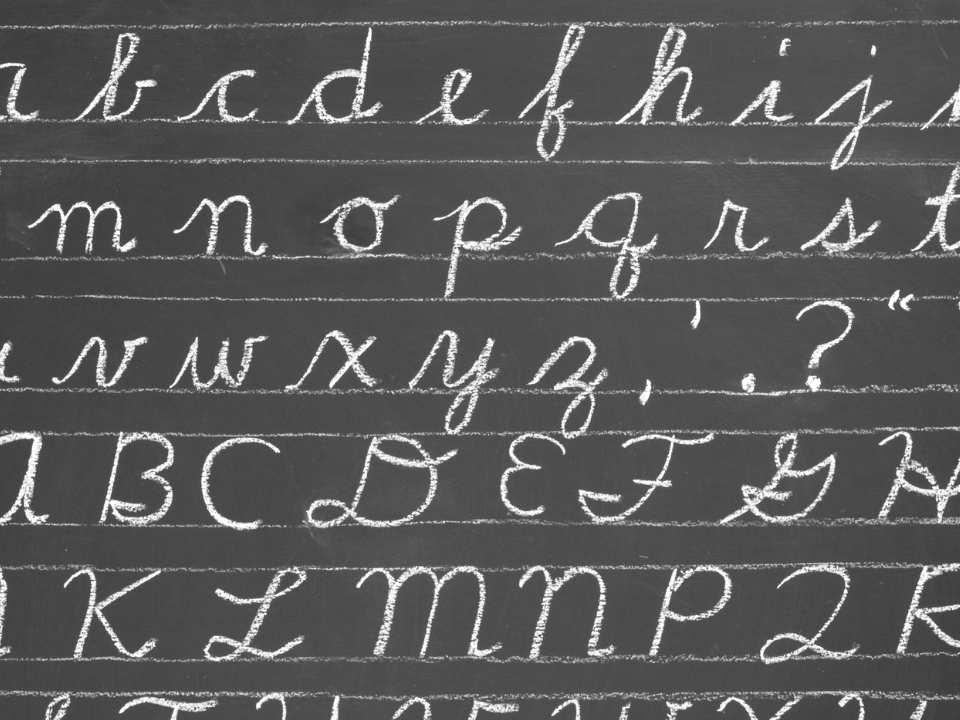 a b c d e f h i j
m n o p q r s t
v w x y z , ' . ? “
A B C D E F G H
K L M N P Q R